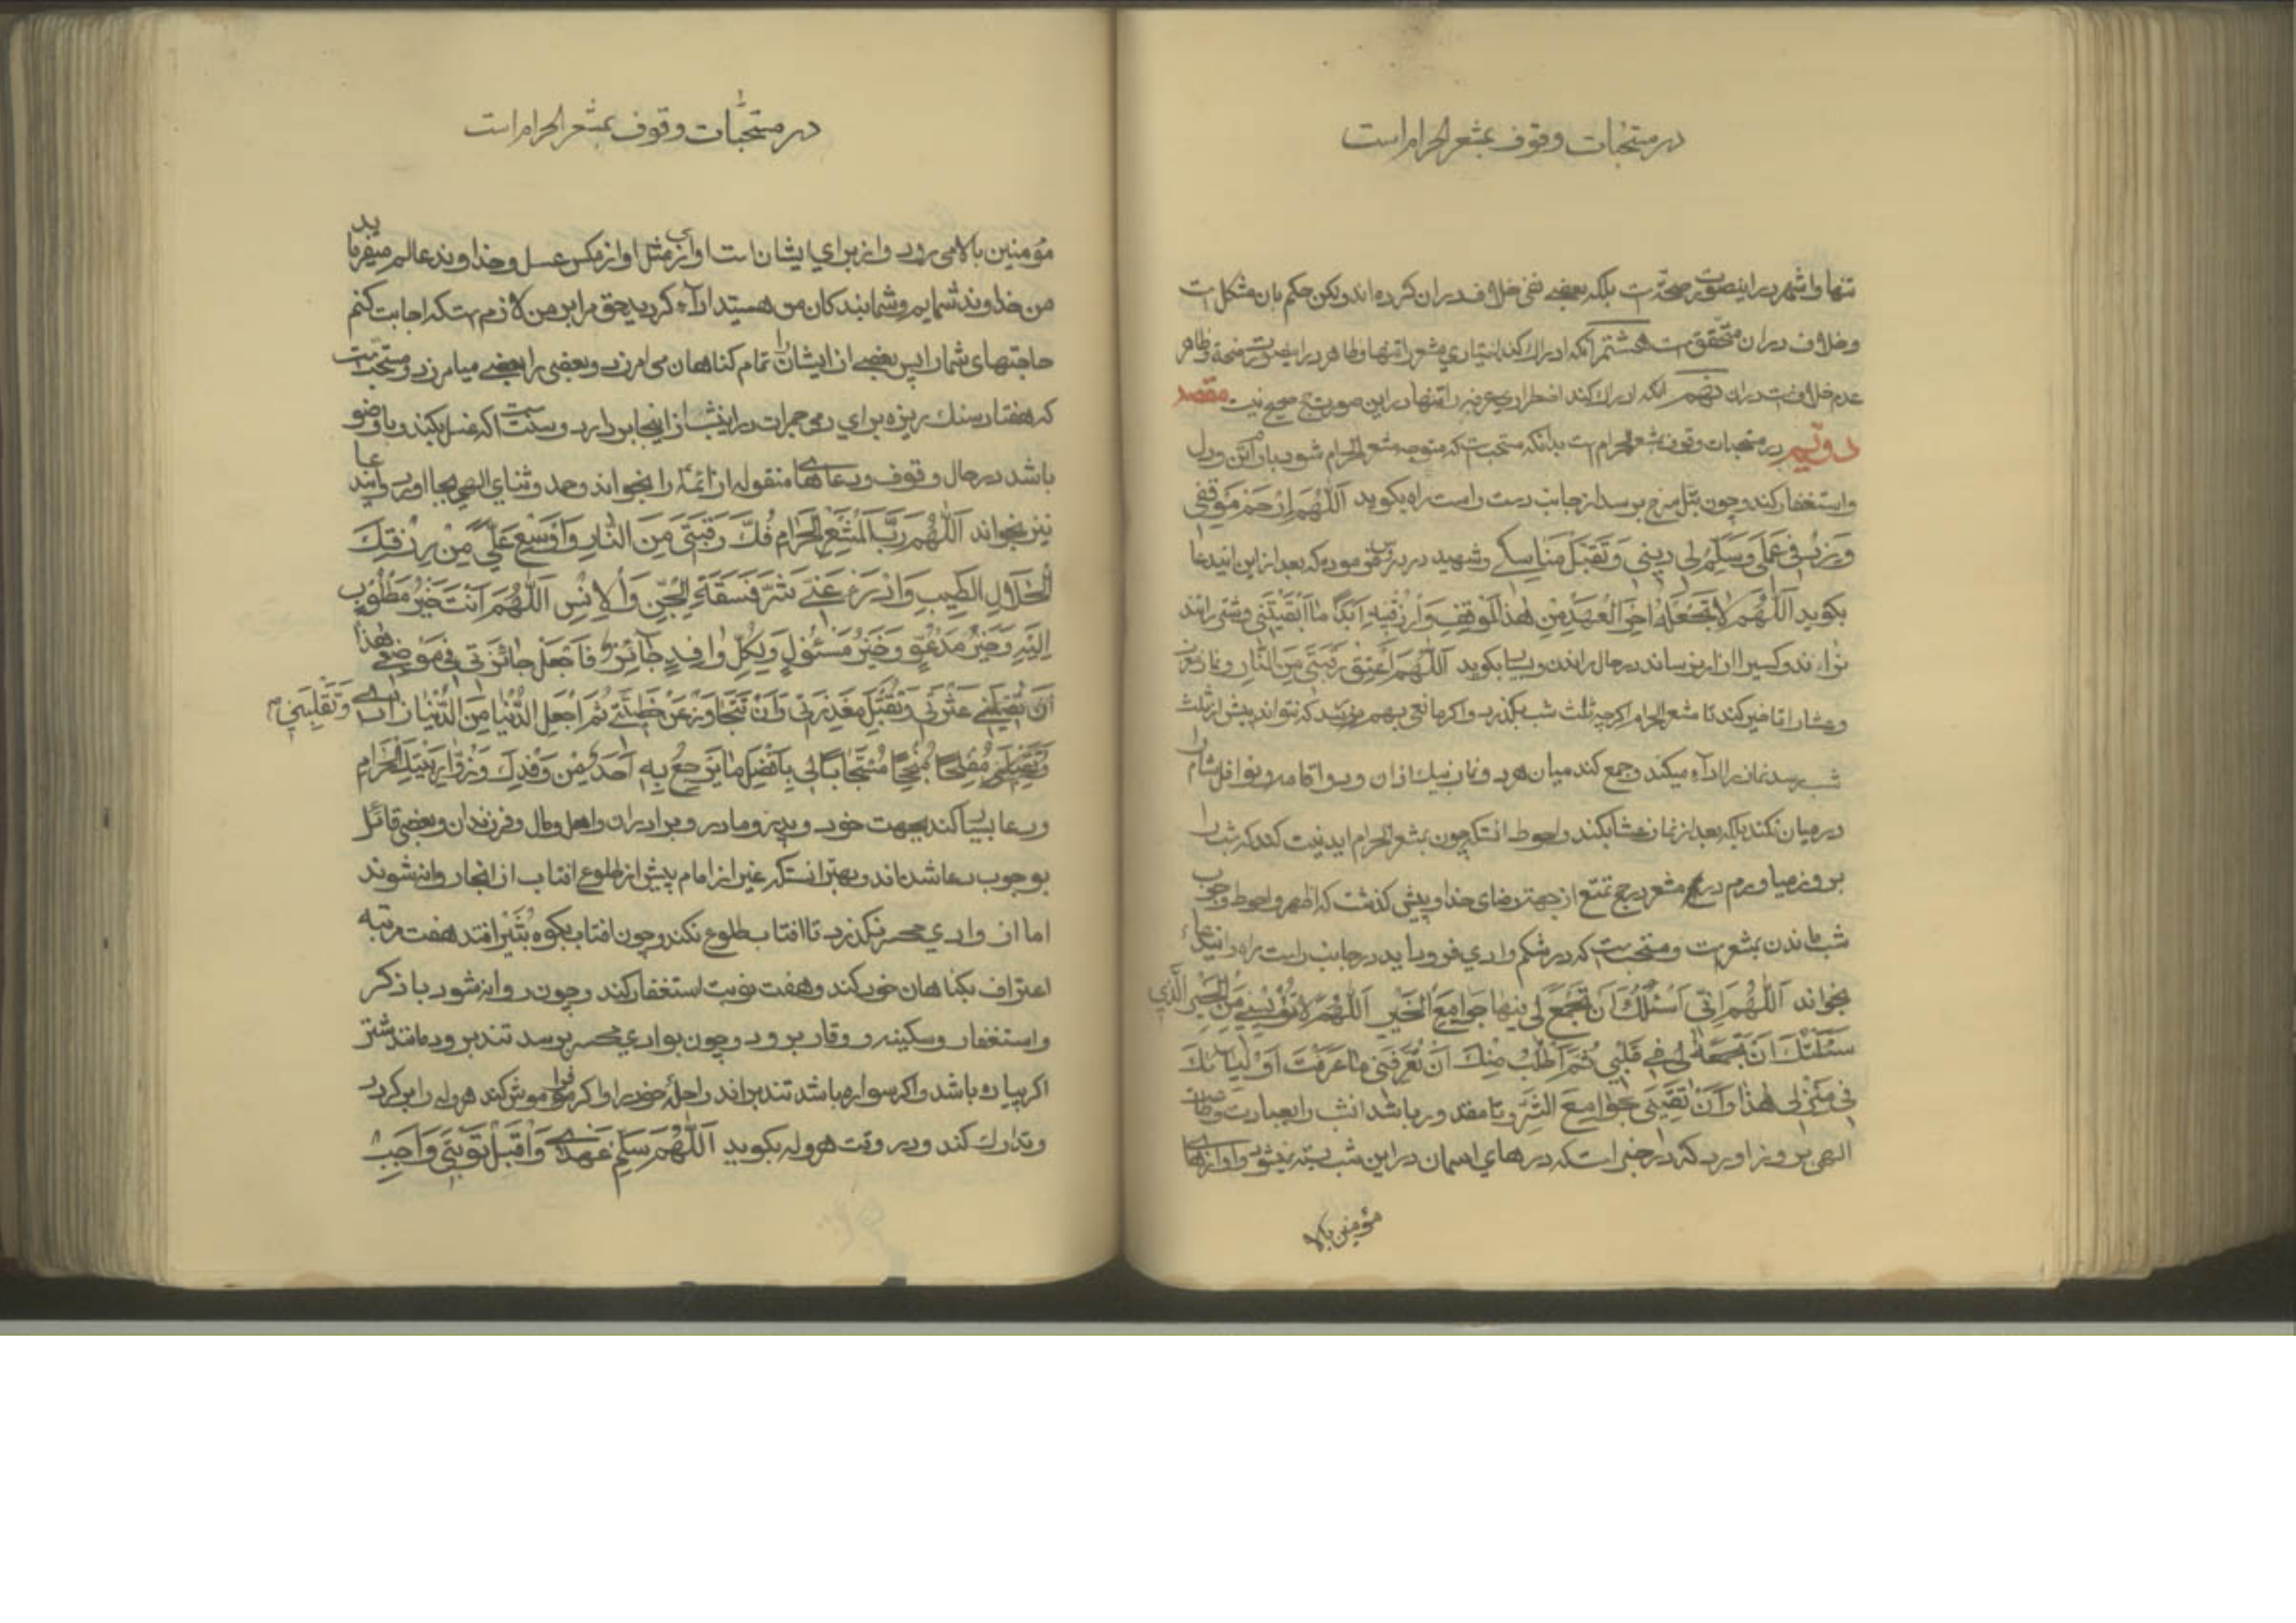 در مستحبات وقوف بمشعر الحرام است
تنها و اشهر در اینصورت صحّتست بلکه بعضی نفی خلاف در ان کرده‌اند ولکن حکم بان مشکل است
و خلاف در ان متحقق است هشتم انکه ادراک کند اختیاری مشعر را تنها و ظاهر در اینصورت صحة و ظاهر
عدم خلافست در ان نهم انکه ادراک کند اضطراری عرفه را تنها در این صورت حج صحیح نیست مقصد
دویّم در مستحبات وقوف بمشعر الحرام است بدانکه مستحبست که متوجه مشعر الحرام شود با رام تن و دل
و استغفار کند و چون بتل سرخ برسد از جانب دست راست راه بکوید اَللّٰهُمَّ اِرْحَمْ مَوْقِفی
وَ زِدْ فی عَمَلی وَ سَلِّمْ لی دینی وَ تَقَبَّلْ مَناسِکی و شهید در دروس فرموده که بعد از این ایندعا
بکوید اَللّٰهُمَّ لا تَجْعَلْهُ اٰخِرَ الْعَهْدِ مِنْ هٰذَا الْمَوْقِفِ وَ ارْزُقْنیهِ اَبَدًا ما اَبْقَیْتَنی و شتر راتند
نراند و کسیرا ازار نرساند در حال راندن و بسیا بکوید اَللّٰهُمَّ اَعْتِقْ رَقَبَتی مِنَ النّارِ و نماز مغرب
و عشا را تاخیر کند تا مشعر الحرام اکرچه ثلث شب بکذرد و اکر مانعی بهم رسد که نتواند پیش از ثلث
شب برسد نماز را در راه میکند و جمع کند میان هر دو نماز بیک اذان و دو اقامه و نوافل شام را
در میان نکند بلکه بعد از نماز عشا بکند و احوط انستکه چون بمشعر الحرام اید نیت کند که شب را
بروز میاورم در مشعر در حج تمتع از جهة رضای خدا و پیش کذشت که اظهر و احوط وجوب
شب ماندن بمشعر است و مستحبست که در شکم وادی فرود اید در جانب راست راه و ایندعاء
بخواند اَللّٰهُمَّ اِنّی اَسْئَلُکَ اَنْ تَجْمَعَ لی فیها جَوامِعَ الْخَیْرِ اَللّٰهُمَّ لا تُؤْیِسْنی مِنَ الْخَیْرِ الَّذی
سَئَلْتُکَ اَنْ تَجْمَعَهُ لی فی قَلْبی ثُمَّ اَطْلُبُ مِنْکَ اَنْ تُعَرِّفَنی ما عَرَّفْتَ اَوْلِیائَکَ
فی مَنْزِلی هٰذا وَ اَنْ تَقِیَنی جَوامِعَ الشَّرِّ و تا مقدور باشد انشب را بعبادت و طاعت
الهی بروز اورد که در خبر است که درهای اسمان در این شب بسته نمیشود و اوازهای
مؤمنین بالا
در مستحبّات وقوف بمشعر الحرام است
مؤمنین بالا می رود و از برای ایشان است اوازی مثل اواز مکس عسل و خداوند عالم میفرماید
من خداوند شمایم و شما بندکان من هستید ادآء کردید حق مرا بر من لازم است که اجابت کنم
حاجتهای شما را پس بعضی از ایشان را تمام کناهان می امرزد و بعضی را بعضی میامرزد و مستحبّست
که هفتاد سنک ریزه برای رمی جمرات در اینشب از اینجا بردارد و سنّت است که غسل بکند و با وضو
باشد در حال وقوف و دعاهای منقوله از ائمّه را بخواند و حمد و ثنای الهی بجا اورد و ایندعا
نیز بخواند اَللّٰهُمَّ رَبَّ الْمَشْعَرِ الْحَرامِ فُکَّ رَقَبَتی مِنَ النّارِ وَ اَوْسِعْ عَلَیَّ مِنْ رِزْقِکَ
الْحَلالِ الطَّیِبِ وَ ادْرَءْ عَنّی شَرَّ فَسَقَةِ الْجِنِّ وَ الْاِنْسِ اَللّٰهُمَّ اَنْتَ خَیْرُ مَطْلُوْبٍ
اِلَیْهِ وَ خَیْرُ مَدْعُوٍّ وَ خَیْرُ مَسْئُوْلٍ وَ لِکُلِّ وافِدٍ جآئِزَةٌ فَاجْعَلْ جائِزَتی فی مَوْضِعی هٰذا
اَنْ تُقیلَنی عَثْرَتی وَ تَقْبَلَ مَعْذِرَتی وَ اَنْ تَتَجاوَزَ عَنْ خَطیئَتی ثُمَّ اجْعَلِ التَّقْوی مِنَ الدُّنْیا زادی وَ تَقْلِبَنی
مُفْلِحًا مُنْجِحًا مُسْتَجابًا لی بِاَفْضَلِ ما یَرْجِعُ بِهِ اَحَدٌ مِنْ وَفْدِکَ وَ زُوّارِ بَیْتِکَ الْحَرامِ
و دعا بسیا کند بجهت خود و پدر و مادر و برادران و اهل و مال و فرزندان و بعضی قائل
بوجوب دعا شده‌اند و بهتر انستکه غیر از امام پیش از طلوع افتاب از انجا روانه شوند
اما از وادی محسر نکذرد تا افتاب طلوع نکند و چون افتاب بکوه ثبیر افتد هفت مرتبه
اعتراف بکناهان خود کند و هفت نوبت استغفار کند و چون روانه شود با ذکر
و استغفار و سکینه و وقار برود و چون بوادی محسر برسد تند برود مانند شتر
اکر پیاده باشد و اکر سواره باشد تند براند راحلۀ خود را و اکر فراموش کند هروله را برکردد
و تدارک کند و در وقت هروله بکوید اَللّٰهُمَّ سَلِّمْ عَهْدی وَ اقْبَلْ تَوْبَتی وَ اَجِبْ